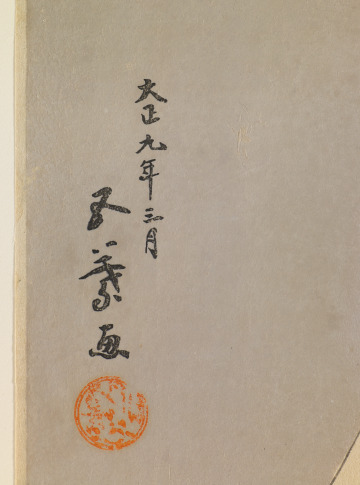 大正九年三月
五葉画